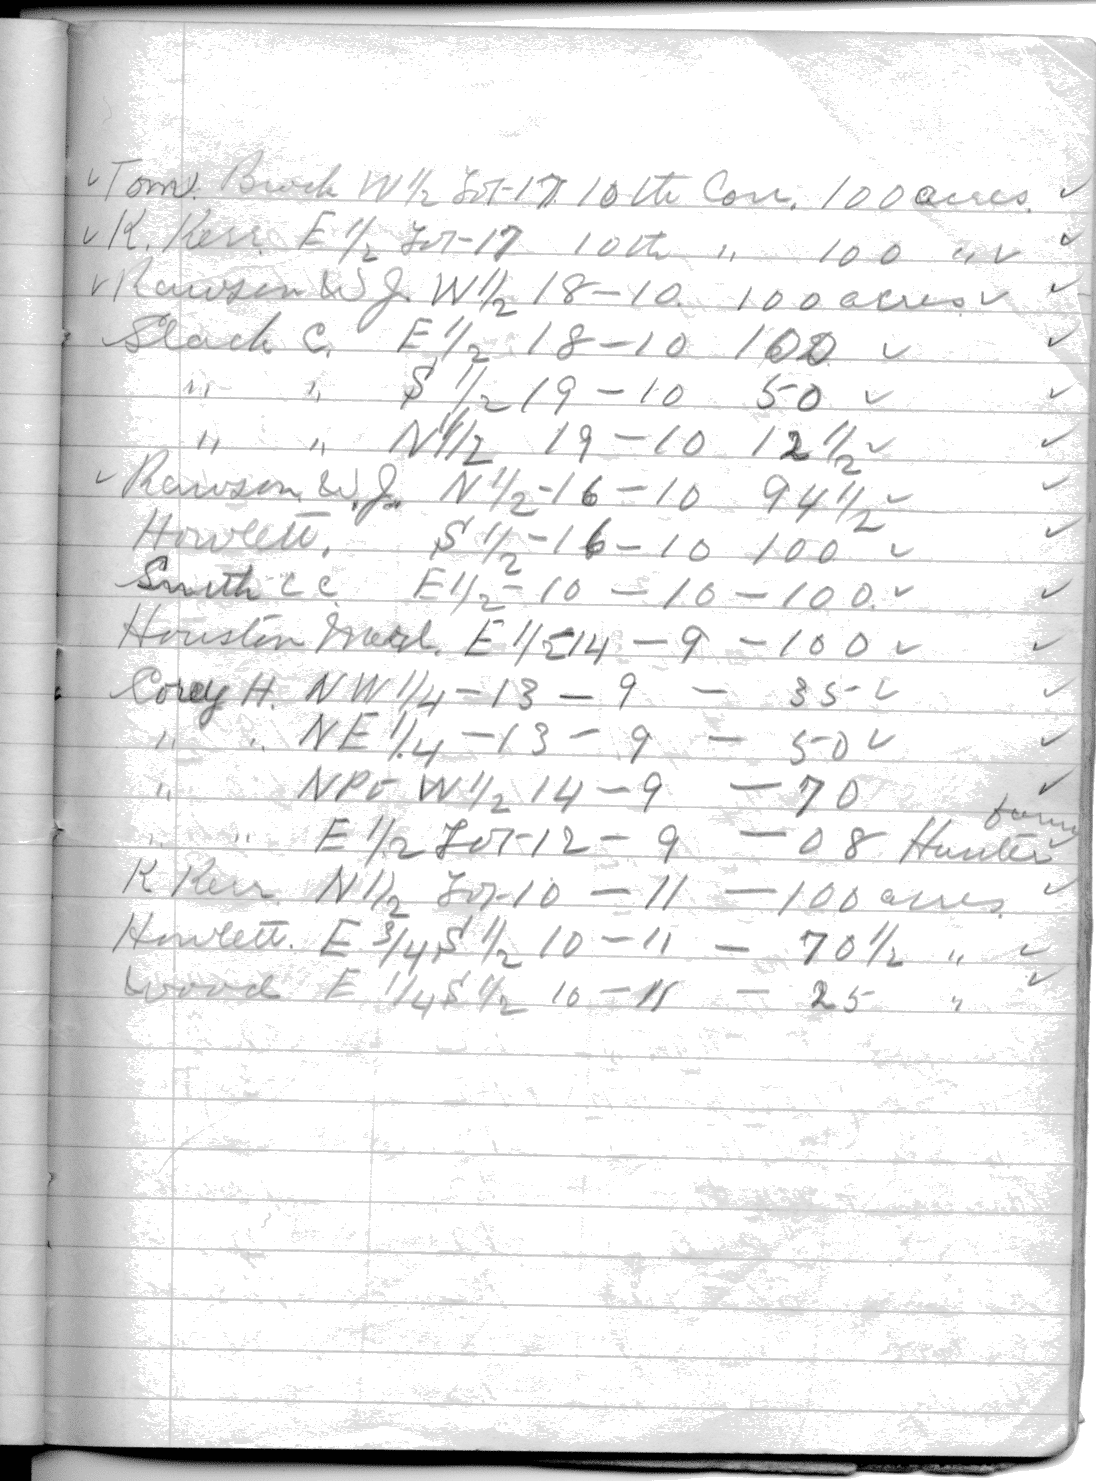 ✓ Tom. Brock W 1/2 Lot-17. 10th Con. 100 acres. ✓
✓ K. Kerr. E 1/2 Lot-17 10th " 100 " ✓ ✓
✓ Rawson W.J. W 1/2 18-10. 100 acres ✓ ✓
Slack C. E 1/2 18-10 100 ✓ ✓
" " S 1/2 19-10 50 ✓ ✓
" " N 1/2 19-10 12 1/2 ✓ ✓
✓ Rawson W.J. N 1/2-16-10 94 1/2 ✓ ✓
Howlett. S 1/2-16-10 100 ✓ ✓
Smith C C. E 1/2-10-10-100. ✓ ✓
Houston E 1/2-14-9-100 ✓ ✓
Corey H. NW 1/4-13-9 - 35- ✓ ✓
" " NE 1/4-13-9 - 50 ✓ ✓
" W 1/2 14-9 - 70 ✓
farm
" " E 1/2 Lot-12-9 - 08 Hunter
K Kerr. N 1/2 Lot-10-11 - 100 acres. ✓
Howlett. E 3/4 S 1/2 10-11 - 70 1/2 " ✓
Wood E 1/4 S 1/2 10-11 - 25 " ✓